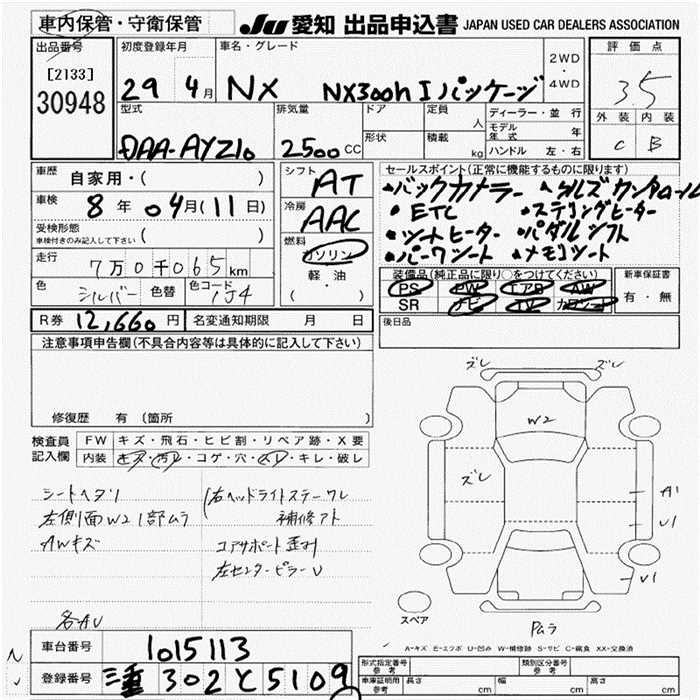 車内保管・守衛保管
JU 愛知 出品申込書 JAPAN USED CAR DEALERS ASSOCIATION
出品番号
[2133]
30948
初度登録年月
29 4月
車名・グレード
NX NX300h Iパッケージ
2WD
・
4WD
評価点
3.5
外装 内装
C B
型式
DAA-AYZ10
排気量
2500 CC
ドア
形状
定員
人
積載
kg
ディーラー・並行
モデル年式 年
ハンドル 左・右
車歴
自家用・( )
車検
8年 04月(11日)
受検形態
車検付きのみ記入して下さい ( )
走行
7万0千065km
色
シルバー 色替 色コード 1J4
シフト
AT
冷房
AAC
燃料
ガソリン
軽油
( )
セールスポイント(正常に機能するものに限ります)
・バックカメラー
・ETC ・ステリングヒーター
・シートヒーター ・パダルシフト
・パーワシート ・メモリシート
装備品(純正品に限り○をつけてください)
PS PW エアB AW
SR ナビ TV カワシート
新車保証書
有・無
R券 12,660円 名変通知期限 月 日
後日品
注意事項申告欄(不具合内容等は具体的に記入して下さい)
修復歴 有(箇所 )
検査員記入欄
FW キズ・飛石・ヒビ割・リペア跡・X要
内装 キズ・汚レ・コゲ・穴・スレ・キレ・破レ
シートヘタリ
左側面W2 1部ムラ
AWキズ
各AU
右ヘッドライトステーワレ
補修アト
コアサポート歪ミ
左センターピラーU
ズレ ズレ
W2
ズレ
A1
U1
U1
スペア
Pムラ
A-キズ E-エクボ U-凹み W-補修跡 S-サビ C-腐食 XX-交換済
車台番号 1015113
登録番号 三重 302 と 5109
形式指定番号
参考
類別区分番号
参考
車庫証明用
参考
長さ cm 幅 cm 高さ cm